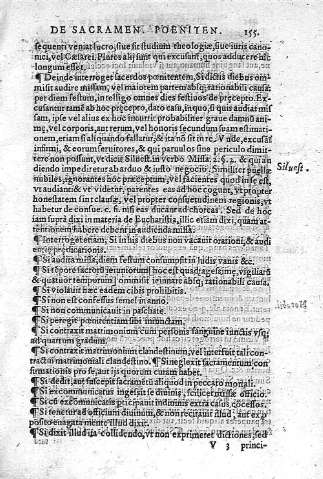 DE SACRAMEN. POENITEN. 155.
sequenti veniat lucro, siue sit studium theologie, siue iuris canonici, vel Cæsarei. Plures alij sunt qui excusant, quos adducere
longum esset.
¶ Deinde interroget sacerdos pœnitentem, Si dictis diebus omisit
audire missam, vel maiorem partem absq; rationabili causa,
per diem festum, intelligo omnes dies festiuos de præcepto.
cusantur tamen ab hoc præcepto, dato casu, in quo, si quis audiat missam,
ipse vel alius ex hoc incurrit probabiliter graue damnũ animę,
vel corporis, aut rerum, vel honoris secundum suam
onem, etiam si aliquando fallatur, & ita nõ sit in re. Vnde, excusãtur
infirmi, & eorum seruitores, & qui paruulos sine periculo dimittere
non possunt, vt dicit Siluest. in verbo Missa.
diendo impediretur ab arduo & iusto negocio. Similiter puellæ
nobiles, ignorantes hoc præceptum, vel
vt audiant & vt videtur, parentes eas ad hoc cogunt, vt propter
honestatem sint clausæ, vel propter consuetudinem regionis, vt
habetur de consue. c. si. nisi eas ducant ad choreas. Sed de hoc
iam supra dixi in materia de Eucharistia, illic etiam dixi, quam attentionem
habere debent in audienda missa.
Siluest.
¶ Interroget etiam, Si in suis diebus non vacauit orationi, & audiencię
prædicationis.
¶ Si audita missa, diem festum consumpsit in ludis vanis &c.
¶ Si tẽpore sacrorũ ieiuniorum, hoc est quadragesimæ, vigiliarũ
& quatuor temporum, omisit ieiunare absq; rationabili causa.
¶ Si violauit hæc eadem cibis prohibitis.
¶ Si non est confessus semel in anno.
¶ Si non communicauit in paschate.
¶ Si peregit pœnitentiam sibi iniunctam.
¶ Si contraxit matrimonium cum personis sanguine iunctis vsq;
ad quartum gradum.
¶ Si contraxit matrimonium clandestinum, vel interfuit tali contractui
matrimoniali clandestino. ¶ Si neglexit sacramentum confirmationis
pro se, aut ijs quorum curam habet.
¶ Si dedit, aut suscepit sacramẽtũ aliquod in peccato mortali.
¶ Si excommunicatus ingessit se diuinis, scilicet missæ officio.
¶ Si cũ excommunicatis participauit indiuinis extra casus cõcessos.
¶ Si tenetur ad officium diuinum, & non recitauit illud, aut exproposito
enagata mente illud dixit.
¶ Si dixit illud ita collidendo, vt non exprimeret dictiones, sed
V 3 princi-